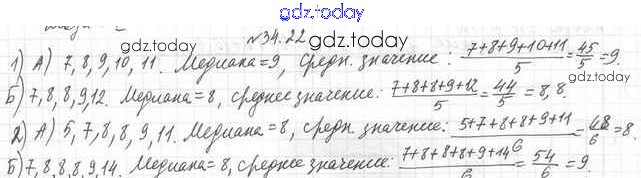 gdz.today
№34.22
gdz.today
1) А) 7, 8, 9, 10, 11. Медиана = 9, средн. значение: (7+8+9+10+11)/5 = 45/5 = 9.
gdz.today
Б) 7, 8, 8, 9, 12. Медиана = 8, среднее значение: (7+8+8+9+12)/5 = 44/5 = 8,8.
2) А) 5, 7, 8, 8, 9, 11. Медиана = 8, средн. значение: (5+7+8+8+9+11)/6 = 48/6 = 8.
Б) 7, 8, 8, 8, 9, 14. Медиана = 8, среднее значение: (7+8+8+8+9+14)/6 = 54/6 = 9.
gdz.today